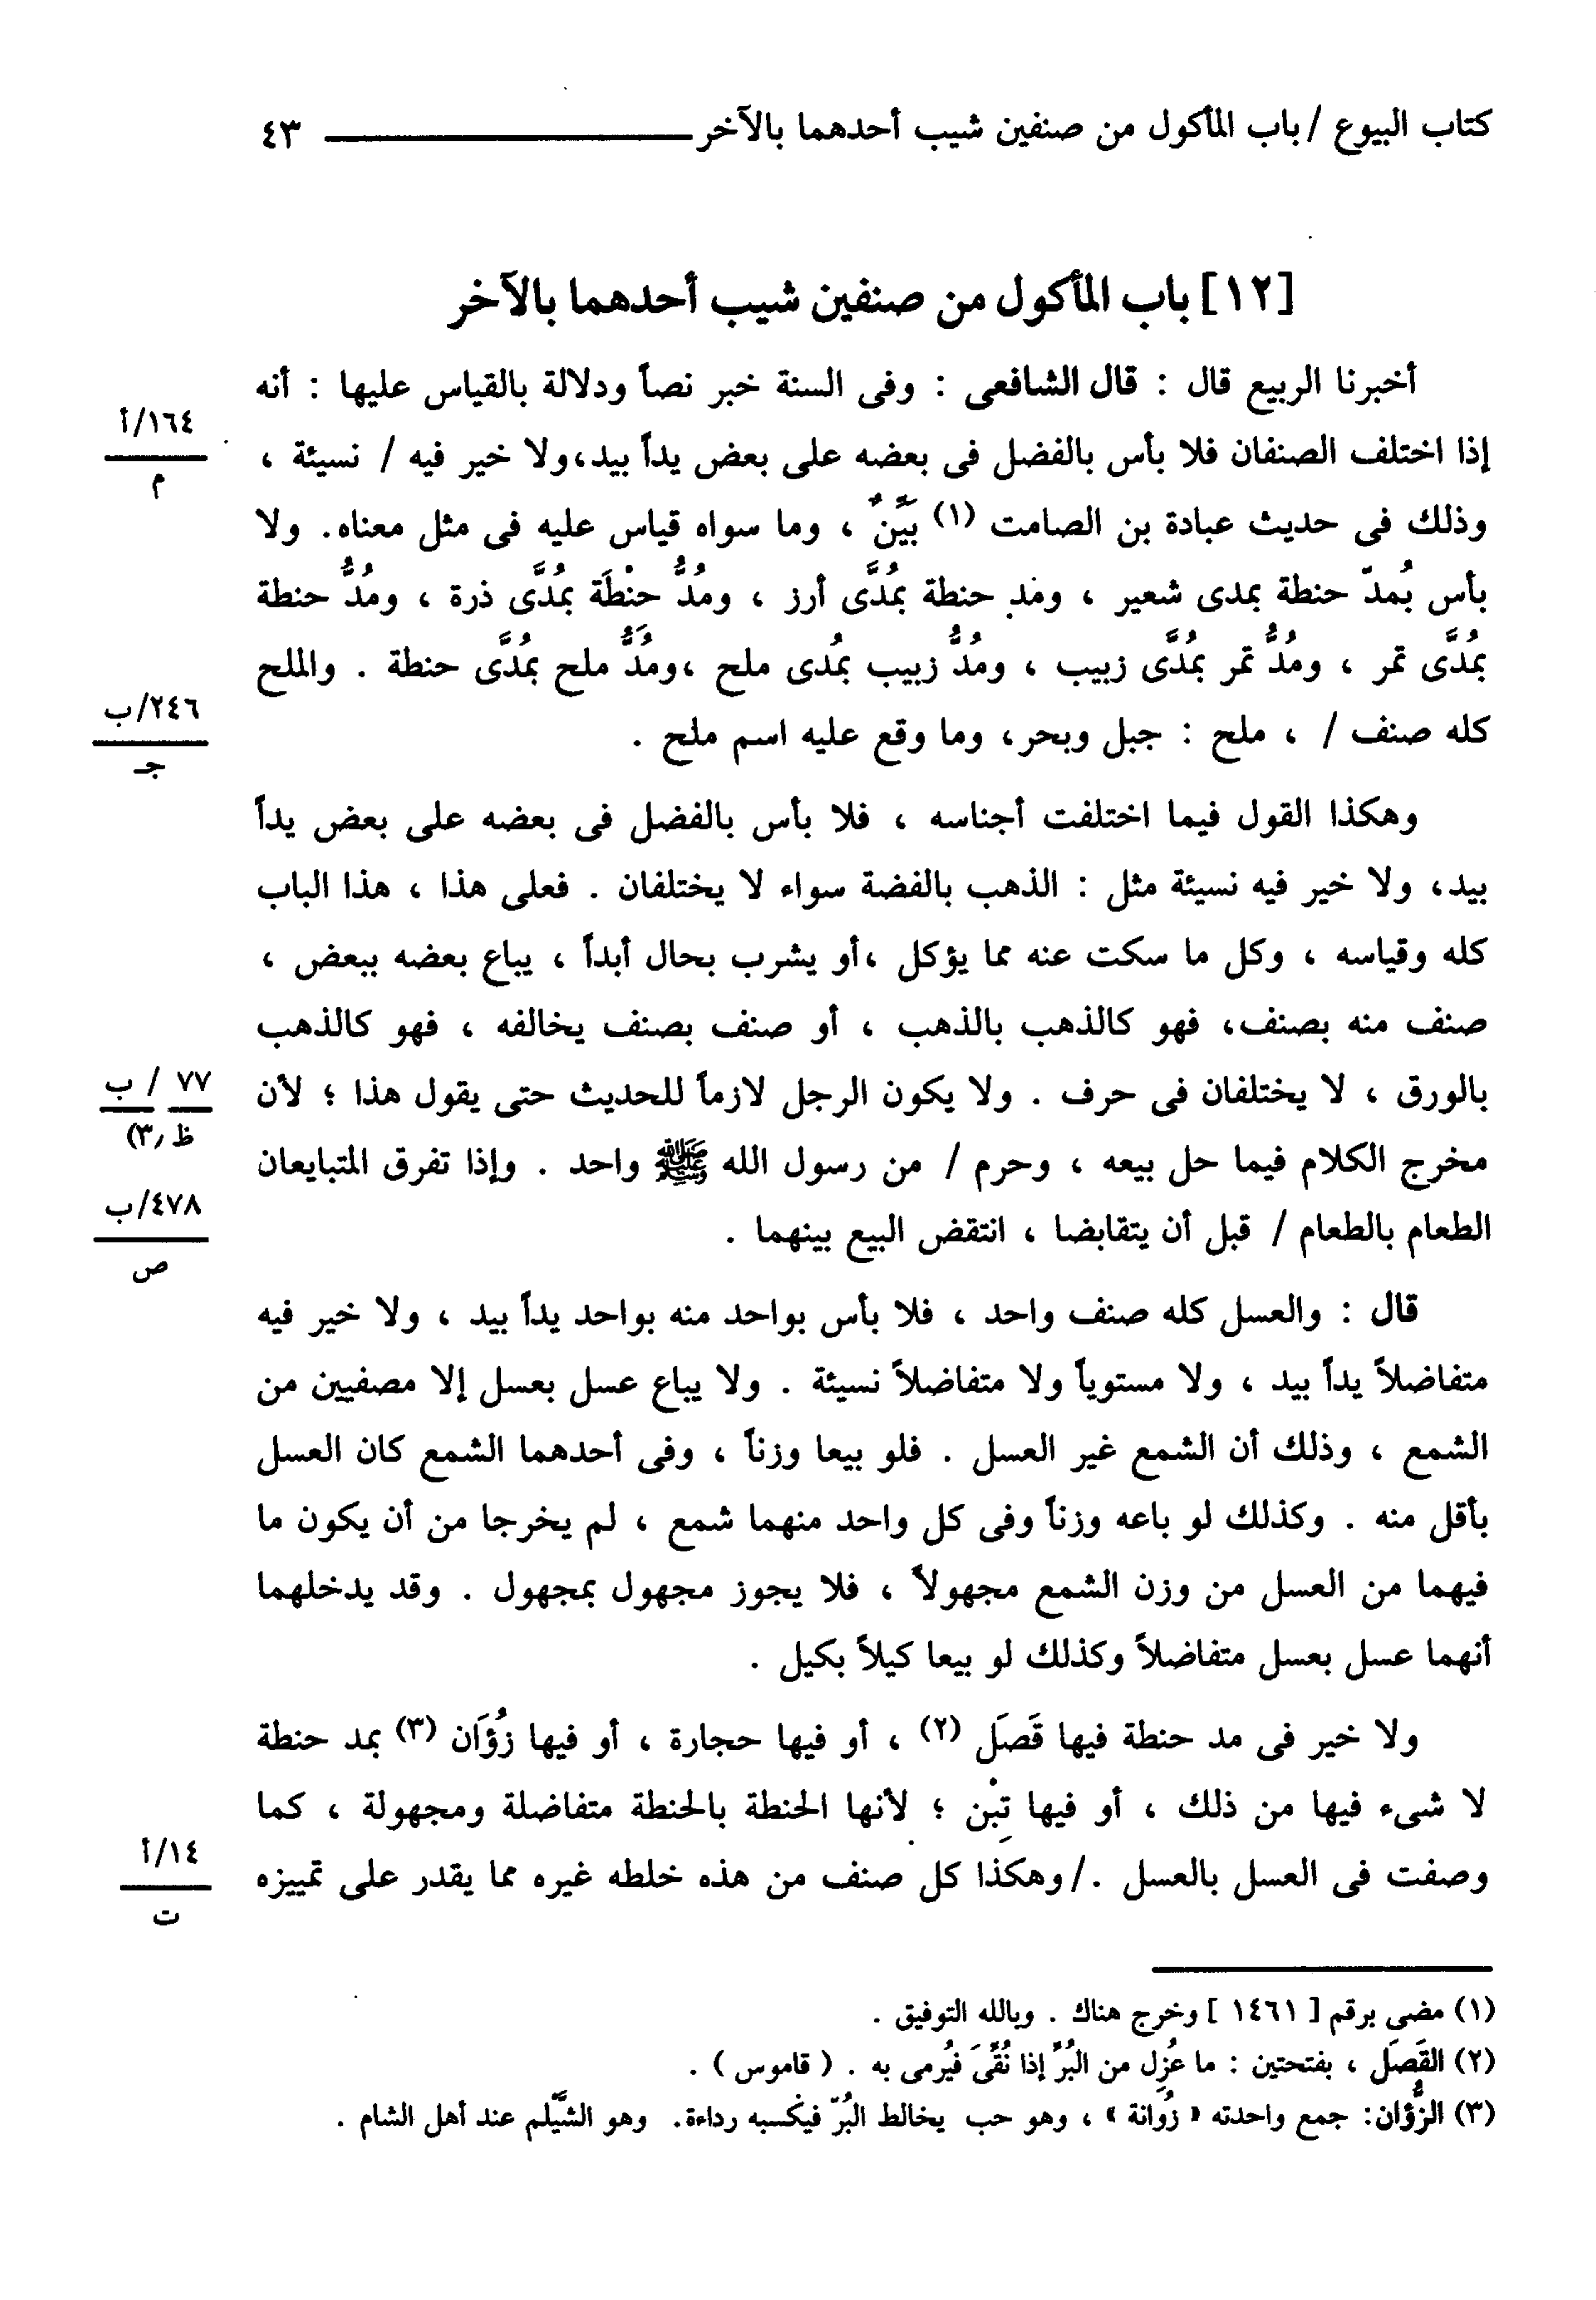 كتاب البيوع / باب المأكول من صنفين شيب أحدهما بالآخر ٤٣
[١٢] باب المأكول من صنفين شيب أحدهما بالآخر
أخبرنا الربيع قال : قال الشافعى : وفى السنة خبر نصاً ودلالة بالقياس عليها : أنه
١٦٤/أ
م
إذا اختلف الصنفان فلا بأس بالفضل فى بعضه على بعض يداً بيد، ولا خير فيه / نسيئة ،
وذلك فى حديث عبادة بن الصامت (١) بَيِّنٌ ، وما سواه قياس عليه فى مثل معناه. ولا
بأس بُمدّ حنطة بمدى شعير ، ومد حنطة بمُدَّى أرز ، ومُدُّ حنْطَة بمُدَّى ذرة ، ومُدُّ حنطة
بمُدَّى تمر ، ومُدُّ تمر بمُدَّى زبيب ، ومُدُّ زبيب بمُدى ملح ،ومُدُّ ملح بمُدَّى حنطة . والملح
٢٤٦/ب
جـ
كله صنف / ، ملح : جبل وبحر، وما وقع عليه اسم ملح .
وهكذا القول فيما اختلفت أجناسه ، فلا بأس بالفضل فى بعضه على بعض يداً
بيد، ولا خير فيه نسيئة مثل : الذهب بالفضة سواء لا يختلفان . فعلى هذا ، هذا الباب
كله وقياسه ، وكل ما سكت عنه مما يؤكل ،أو يشرب بحال أبداً ، يباع بعضه ببعض ،
صنف منه بصنف، فهو كالذهب بالذهب ، أو صنف بصنف يخالفه ، فهو كالذهب
٧٧ / ب
ظ (٣)
بالورق ، لا يختلفان فى حرف . ولا يكون الرجل لازماً للحديث حتى يقول هذا ؛ لأن
مخرج الكلام فيما حل بيعه ، وحرم / من رسول الله ﷺ واحد . وإذا تفرق المتبايعان
٤٧٨/ب
ص
الطعام بالطعام / قبل أن يتقابضا ، انتقض البيع بينهما .
قال : والعسل كله صنف واحد ، فلا بأس بواحد منه بواحد يداً بيد ، ولا خير فيه
متفاضلاً يداً بيد ، ولا مستوياً ولا متفاضلاً نسيئة . ولا يباع عسل بعسل إلا مصفيين من
الشمع ، وذلك أن الشمع غير العسل . فلو بيعا وزناً ، وفى أحدهما الشمع كان العسل
بأقل منه . وكذلك لو باعه وزناً وفى كل واحد منهما شمع ، لم يخرجا من أن يكون ما
فيهما من العسل من وزن الشمع مجهولاً ، فلا يجوز مجهول بمجهول . وقد يدخلهما
أنهما عسل بعسل متفاضلاً وكذلك لو بيعا كيلاً بكيل .
ولا خير فى مد حنطة فيها قَصَل (٢) ، أو فيها حجارة ، أو فيها زُؤَان (٣) بمد حنطة
لا شىء فيها من ذلك ، أو فيها تِبْن ؛ لأنها الحنطة بالحنطة متفاضلة ومجهولة ، كما
١٤/أ
ت
وصفت فى العسل بالعسل ./ وهكذا كل صنف من هذه خلطه غيره مما يقدر على تمييزه
(١) مضى برقم [ ١٤٦١ ] وخرج هناك . وبالله التوفيق .
(٢) القَصَل ، بفتحتين : ما عُزِل من البُرِّ إذا نُقِّىَ فيُرمى به . ( قاموس ) .
(٣) الزُّؤان: جمع واحدته « زُوانة » ، وهو حب يخالط البُرّ فيكسبه رداءة. وهو الشَّيْلم عند أهل الشام .